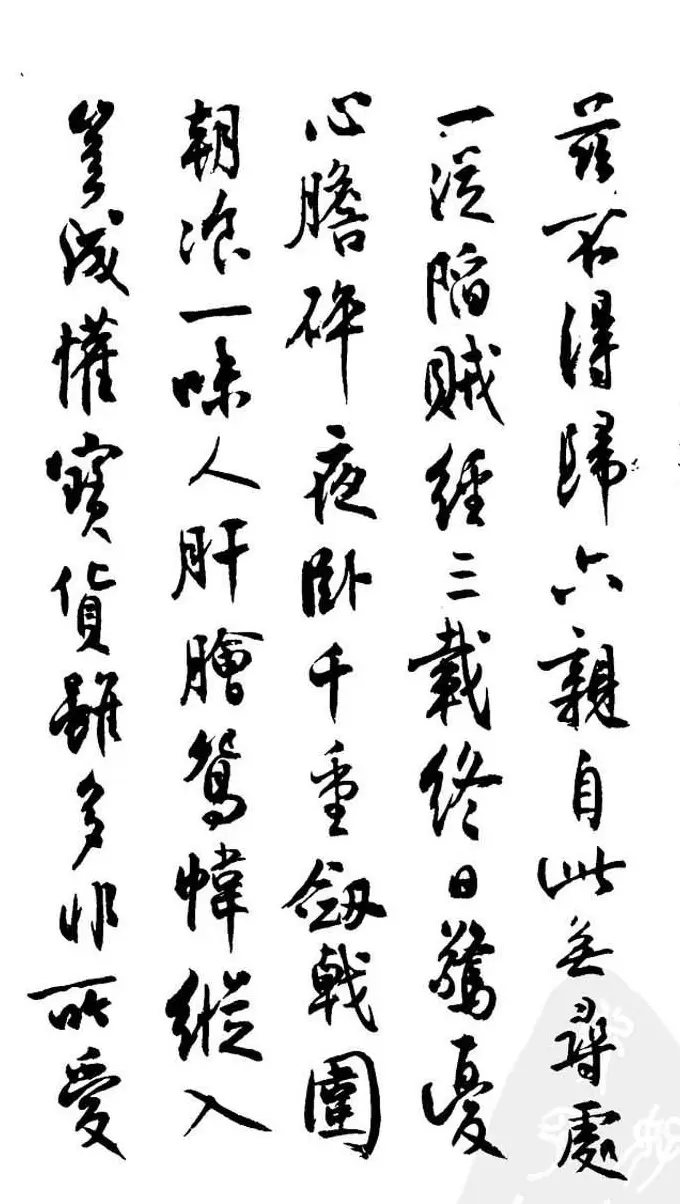 茲不得歸六親自此無尋處
一從陷賊經三載終日驚憂
心膽碎夜臥千重劔戟圍
朝飡一味人肝膾鴛幃縱入
豈成懽寶貨雖多非所愛